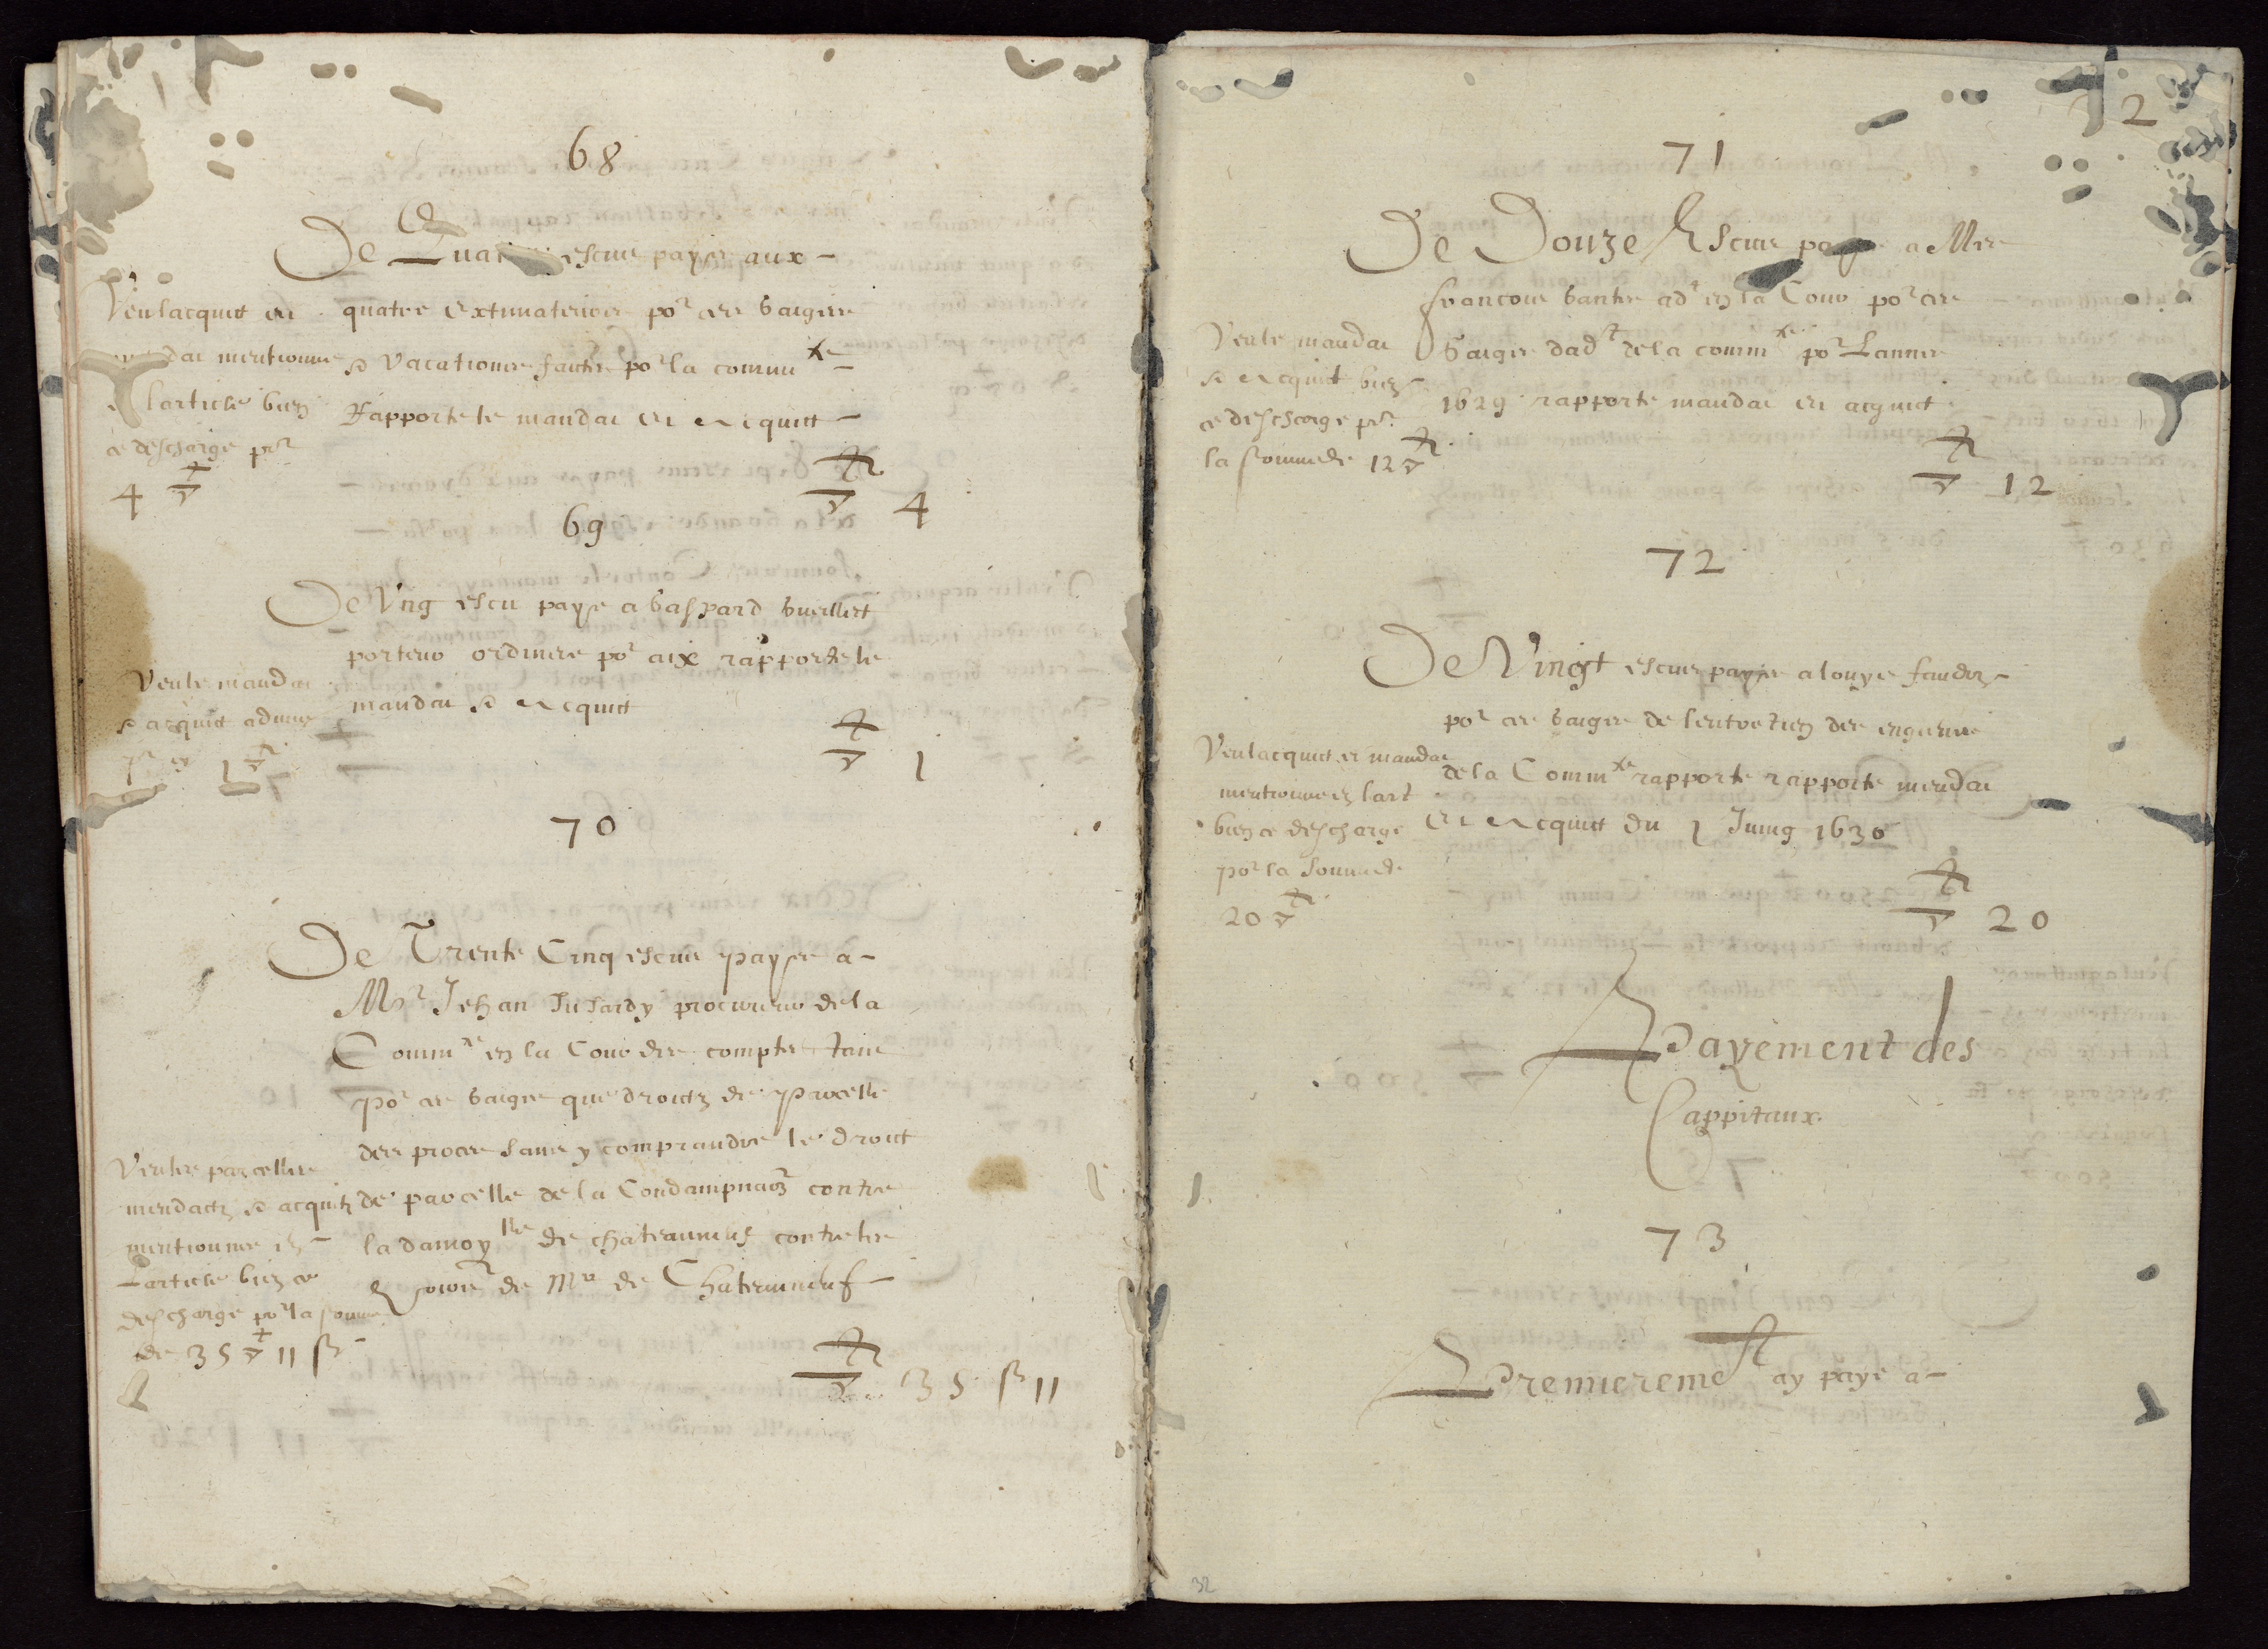 68
De Quatre escus payes aux
quatre extimateurs po.r ses gaiges
& vacations faictes po.r la commu.te
Rapporte le mandat et acquit
4
Veu lacquit et
mandat mentionne
larticle bien
et descharge po.r
4
69
De Ung escu paye a Gaspard
porteur ordinere po.r aix rapporte le
mandat & acquit
1
Veu le mandat
& acquit admis
1
70
De Trente Cinq escus payes a
M.e Jehan procureur de la
Comm.te en la Cour des comptes tant
po.r ses gaiges que droictz de parcelle
des proces sans y comprandre le droict
de parcelle de la Condampnaon contre
la damoy.lle de chateauneuf contre les
de M.r de Chateauneuf
35 ss 11
Veu les parcelles
mendactz & acquitz
mentionnes en
Larticle bien et
descharge po.r la somme
de 35 11 ss
2
71
De Douze Escus payes a Me
francois adt en la Cour po.r ses
Gaiges dadt de la comm.te po.r Lannee
1629 rapporte mandat et acquit
12
Veu le mandat
& acquit bien
et descharge po.r
la somme de 12
72
De Vingt escus payes a louys
po.r ses gaiges de lentretien des
de la Comm.te rapporte rapporte mendat
et acquit du 1 Juing 1630
20
Veu lacquit et mandat
mentionne en lart
bien et descharge
po.r la somme de
20
Payement des
Cappitaux
73
Premieremt ay paye a
32